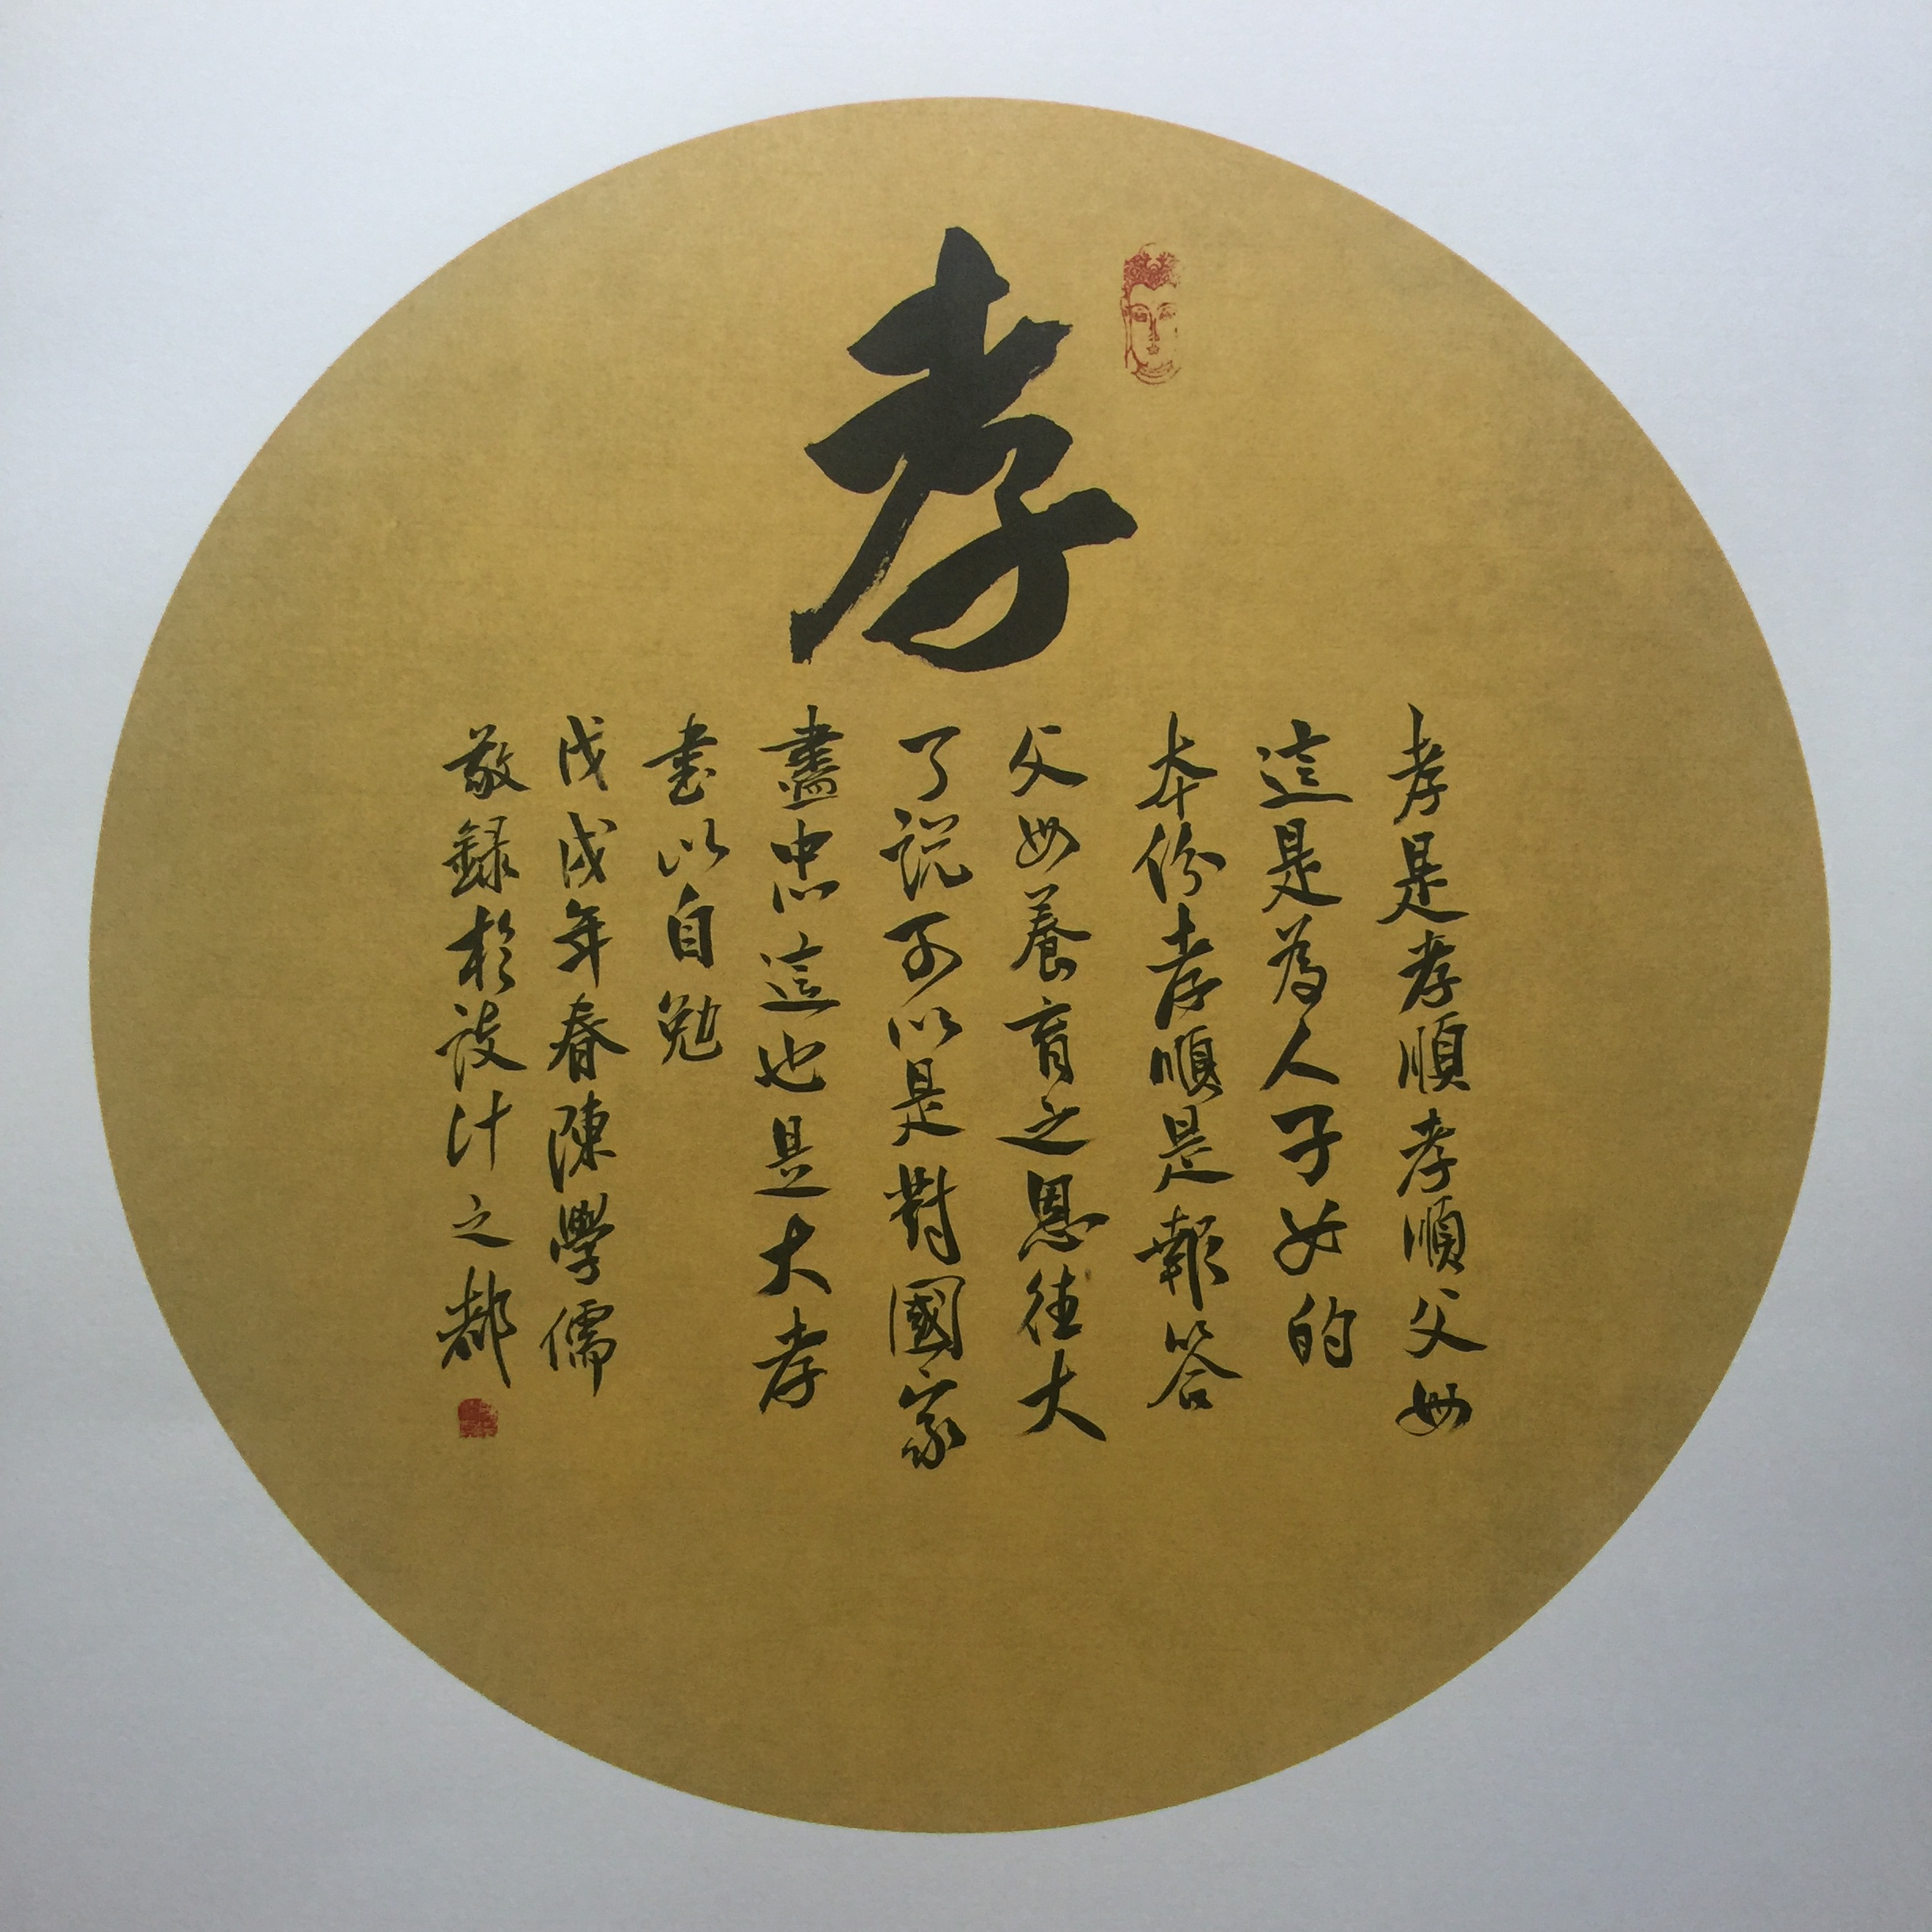 孝
孝是孝順孝順父母
這是為人子女的
本份孝順是報答
父母養育之恩往大
了說可以是對國家
盡忠這也是大孝
書以自勉
戊戌年春陳學儒
敬録於設計之都